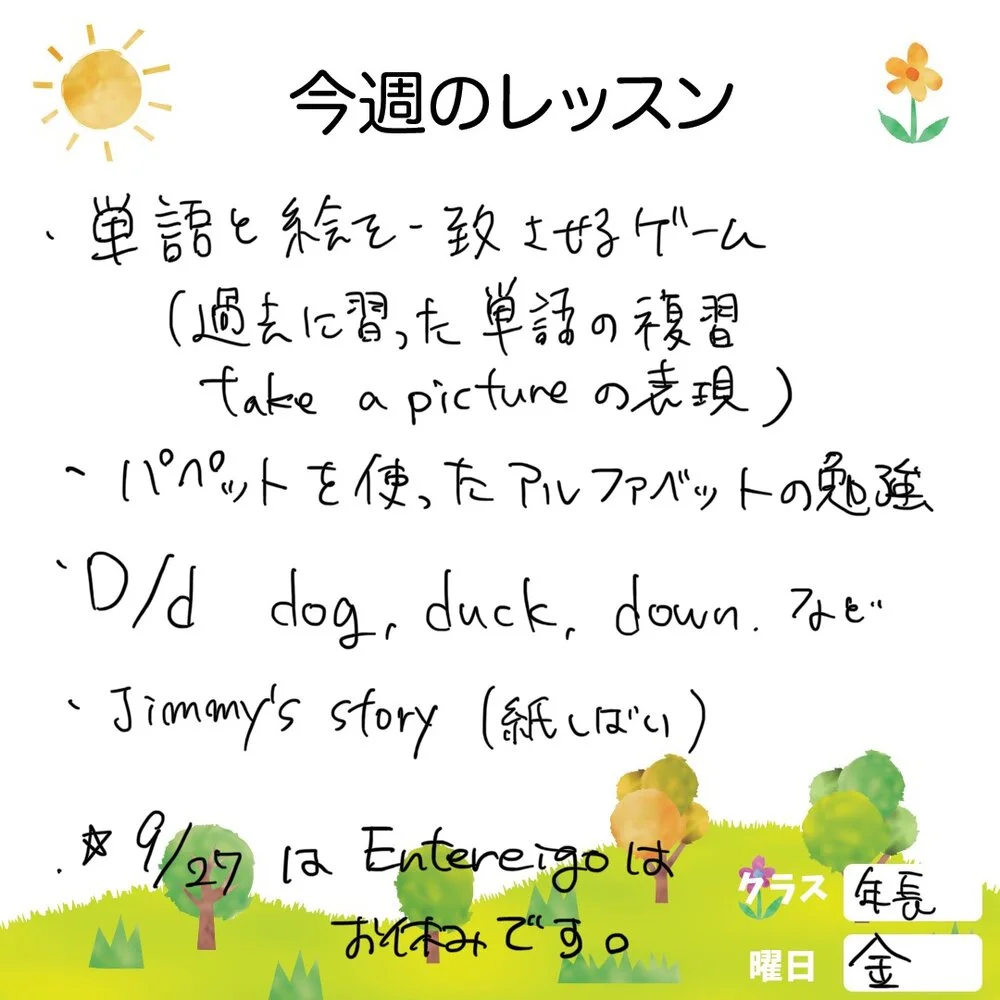 今週のレッスン
・単語と絵を一致させるゲーム
(過去に習った単語の複習
take a pictureの表現)
・パペットを使ったアルファベットの勉強
・D/d dog, duck, down. など
・Jimmy's story (紙しばい)
・☆9/27 は Entereigoは
お休みです。
クラス 年長
曜日 金